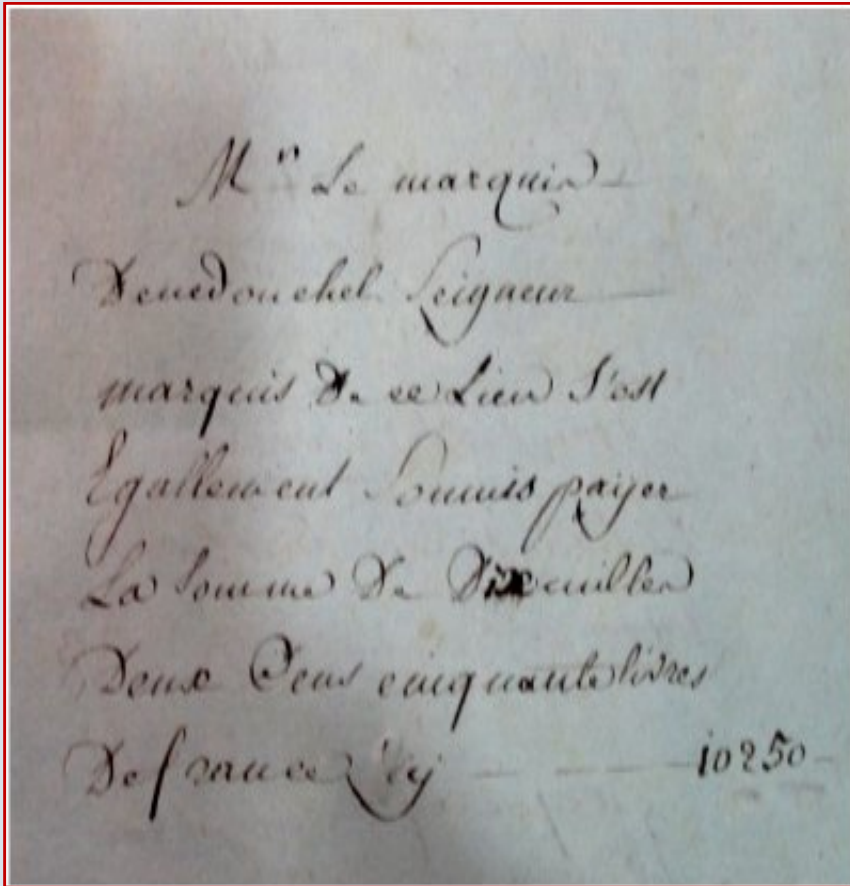 Mr Le marquis
Denedonchel Seigneur
marquis De ce Lieu s'est
Egallement Soumis payer
La Somme De Dix milles
Deux Cens cinquante livres
De france Icy 10250